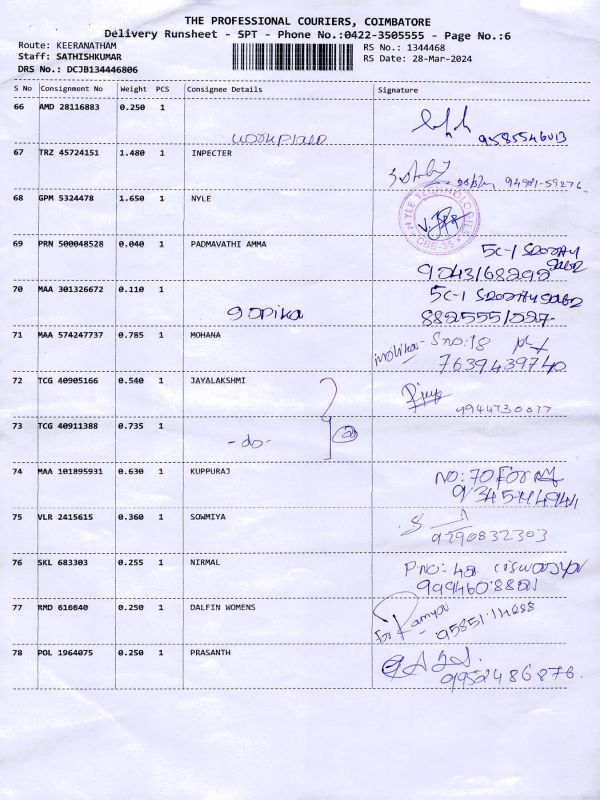 THE PROFESSIONAL COURIERS, COIMBATORE
Delivery Runsheet - SPT - Phone No.:0422-3505555 - Page No.:6
Route: KEERANATHAM
RS No.: 1344468
Staff: SATHISHKUMAR
RS Date: 28-Mar-2024
DRS No.: DCJB134446806
S No Consignment No Weight PCS Consignee Details Signature
66 AMD 28116883 0.250 1
67 TRZ 45724151 1.480 1 INPECTER
94981-59276
68 GPM 5324478 1.650 1 NYLE
NYLE TECHNOLOGIES
CBE-35
69 PRN 500048528 0.040 1 PADMAVATHI AMMA
5C-1
9043168292
70 MAA 301326672 0.110 1
gopika
5C-1
8825551227
71 MAA 574247737 0.785 1 MOHANA
S no:18
7639439740
72 TCG 40905166 0.540 1 JAYALAKSHMI
9944730077
73 TCG 40911388 0.735 1
-do-
2
74 MAA 101895931 0.630 1 KUPPURAJ
NO:70
75 VLR 2415615 0.360 1 SOWMIYA
9290832303
76 SKL 683303 0.255 1 NIRMAL
P.NO: 42
77 RMD 616640 0.250 1 DALFIN WOMENS
for Ramya
78 POL 1964075 0.250 1 PRASANTH
9952486876.